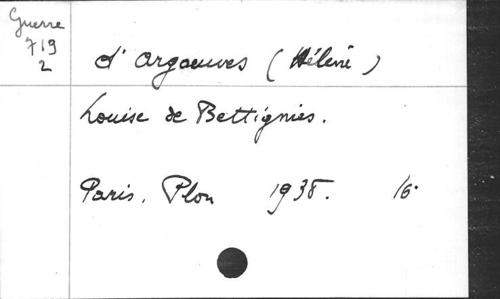 Guerre
719
2
d'Argoeuves (Hélène)
Louise de Bettignies.
Paris, Plon 1938. 16°